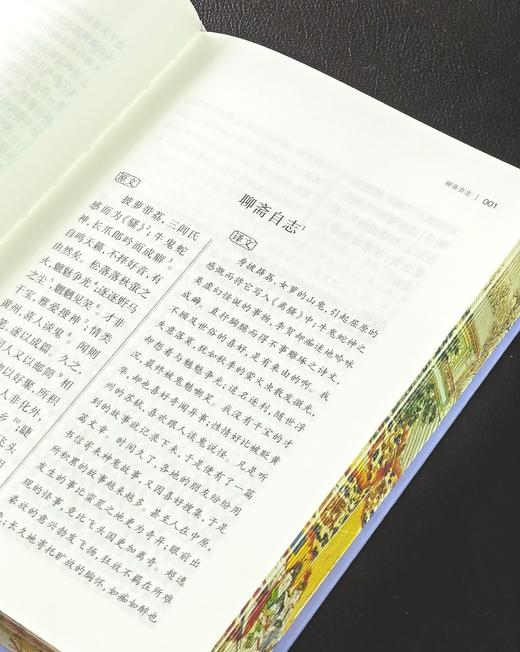 聊斋自志 | 001
聊斋自志¹
原文
披萝带荔，三闾氏
感而为《骚》²；牛鬼蛇
神，长爪郎吟而成癖³。
自鸣天籁，不择好音，有
由然矣。松落落秋萤之
火，魑魅争光⁴；逐逐野马
之尘⁵，魍魉见笑。才非
干宝，雅爱搜神⁷；情类
黄州，喜人谈鬼⁸。闻则
笔，遂以成篇。久之，
同人又以邮筒⁹相
物以好聚，所积
人非化外，
乡¹⁰；睫
飞头
译文
身披薜荔、女萝的山鬼，引起屈原的
感慨而将它写入《离骚》中；牛鬼蛇神之
类虚幻怪诞的事物，李贺却痴迷地吟咏
成癖。直抒胸臆而得不事雕琢之诗文，
不顾及世俗的喜好，是有来由的啊。我
失意落寞，犹如秋季的萤火虫散发微光，
却想着与魑魅争光；追名逐利，随世浮
沉，最终被鬼魅嘲笑。我没有干宝的才
华，却也喜好奇闻异事；性情好比被贬黄
州的苏轼，喜欢跟人谈鬼说怪。凡是听
到的故事就记录下来，于是便有了一篇
篇文章。时间久了，各地的朋友纷纷用
书信寄来神鬼故事，又因喜好搜集，于是
所积累的故事越来越多。甚至人在中原，
发生的事比蛮荒之地更为奇异，眼前出
现的怪事，竟比飞头国更加离奇。超逸
豪放的意兴勃发飞扬，狂放不羁在所难
；长久地寄托旷放的胸怀，如痴如醉也